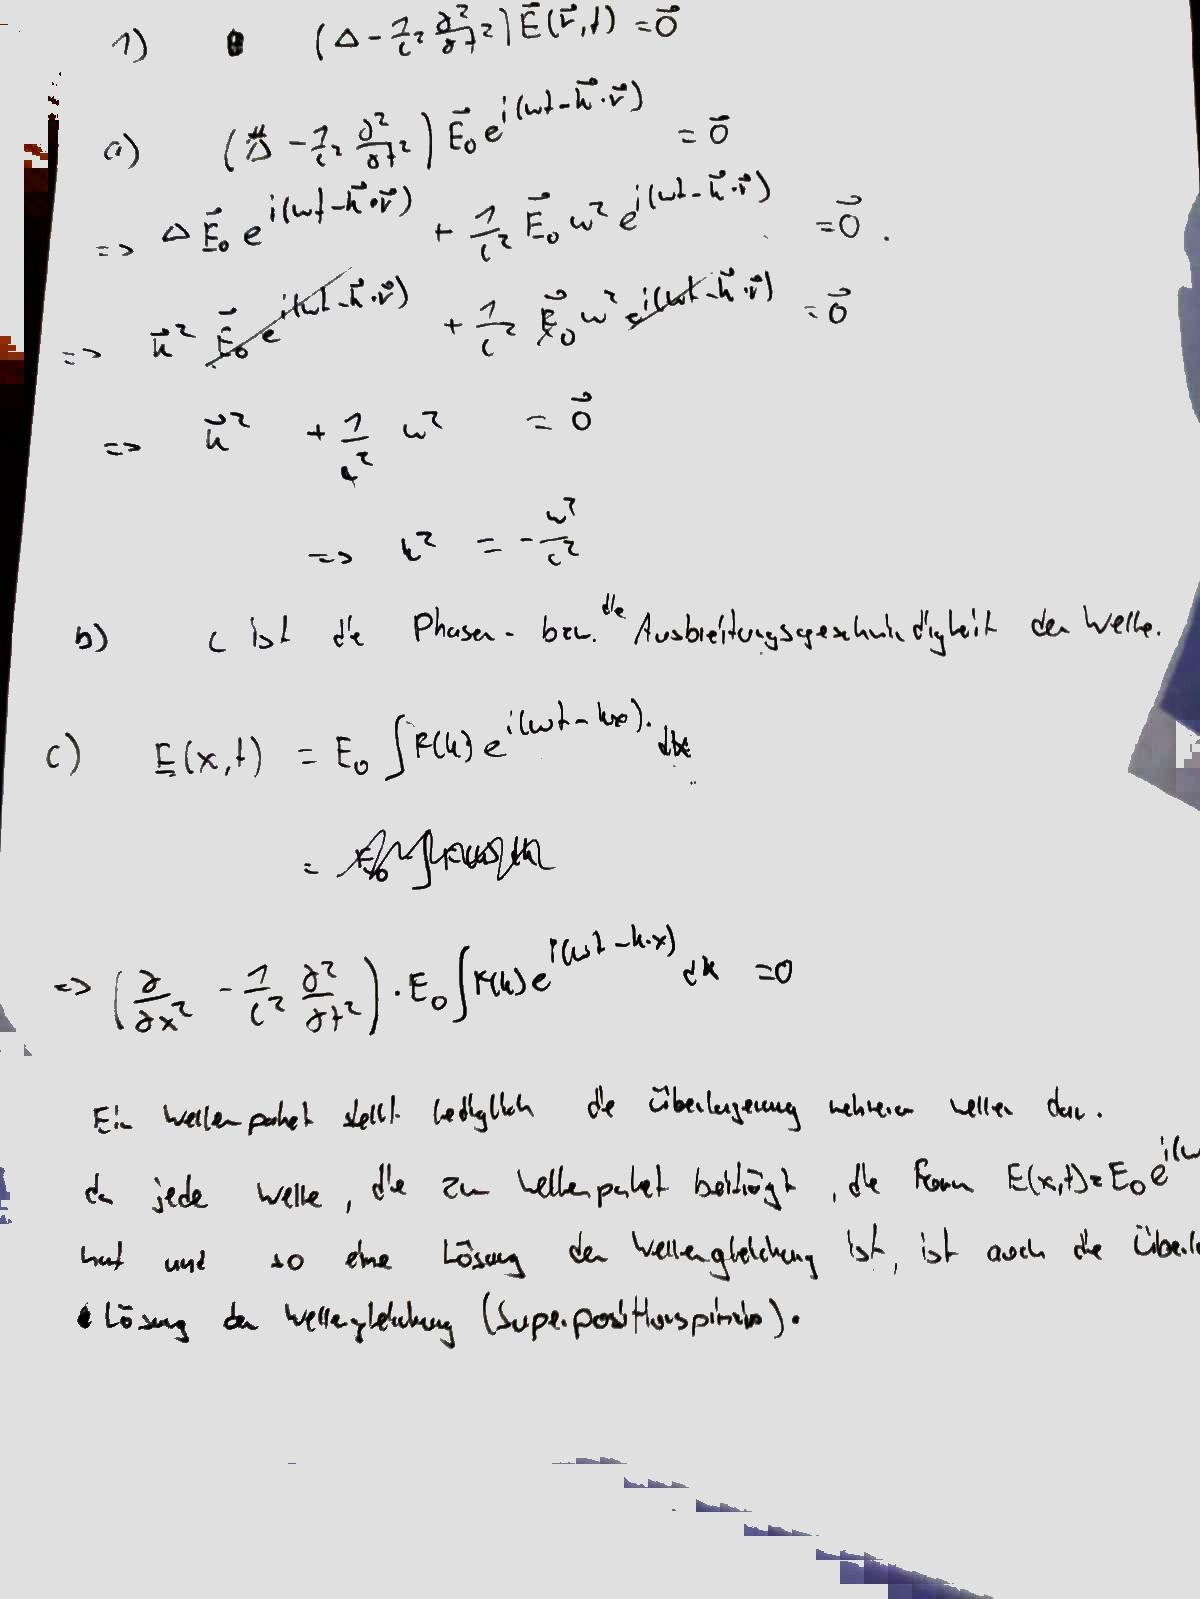 1) (Δ - 1/c² ∂²/∂t²) E⃗(r⃗,t) = 0⃗
a) (Δ - 1/c² ∂²/∂t²) E⃗₀ e^{i(ωt - k⃗·r⃗)} = 0⃗
=> Δ E⃗₀ e^{i(ωt - k⃗·r⃗)} + 1/c² E⃗₀ ω² e^{i(ωt - k⃗·r⃗)} = 0⃗.
=> k⃗² E⃗₀ e^{i(ωt - k⃗·r⃗)} + 1/c² E⃗₀ ω² e^{i(ωt - k⃗·r⃗)} = 0⃗
=> k⃗² + 1/c² ω² = 0⃗
=> k² = - ω²/c²
b) c ist die Phasen- bzw. die Ausbreitungsgeschwindigkeit der Welle.
c) E(x,t) = E₀ ∫F(k) e^{i(ωt - kx)} · dk
=
=> (∂/∂x² - 1/c² ∂²/∂t²) · E₀ ∫F(k) e^{i(ωt - k·x)} dk = 0
Ein Wellenpaket stellt lediglich die Überlagerung mehrerer Wellen dar.
da jede Welle, die zum Wellenpaket beiträgt, die Form E(x,t) = E₀ e^{i(ω
hat und so eine Lösung der Wellengleichung ist, ist auch die Überla
Lösung der Wellengleichung (Superpositionsprinzip).